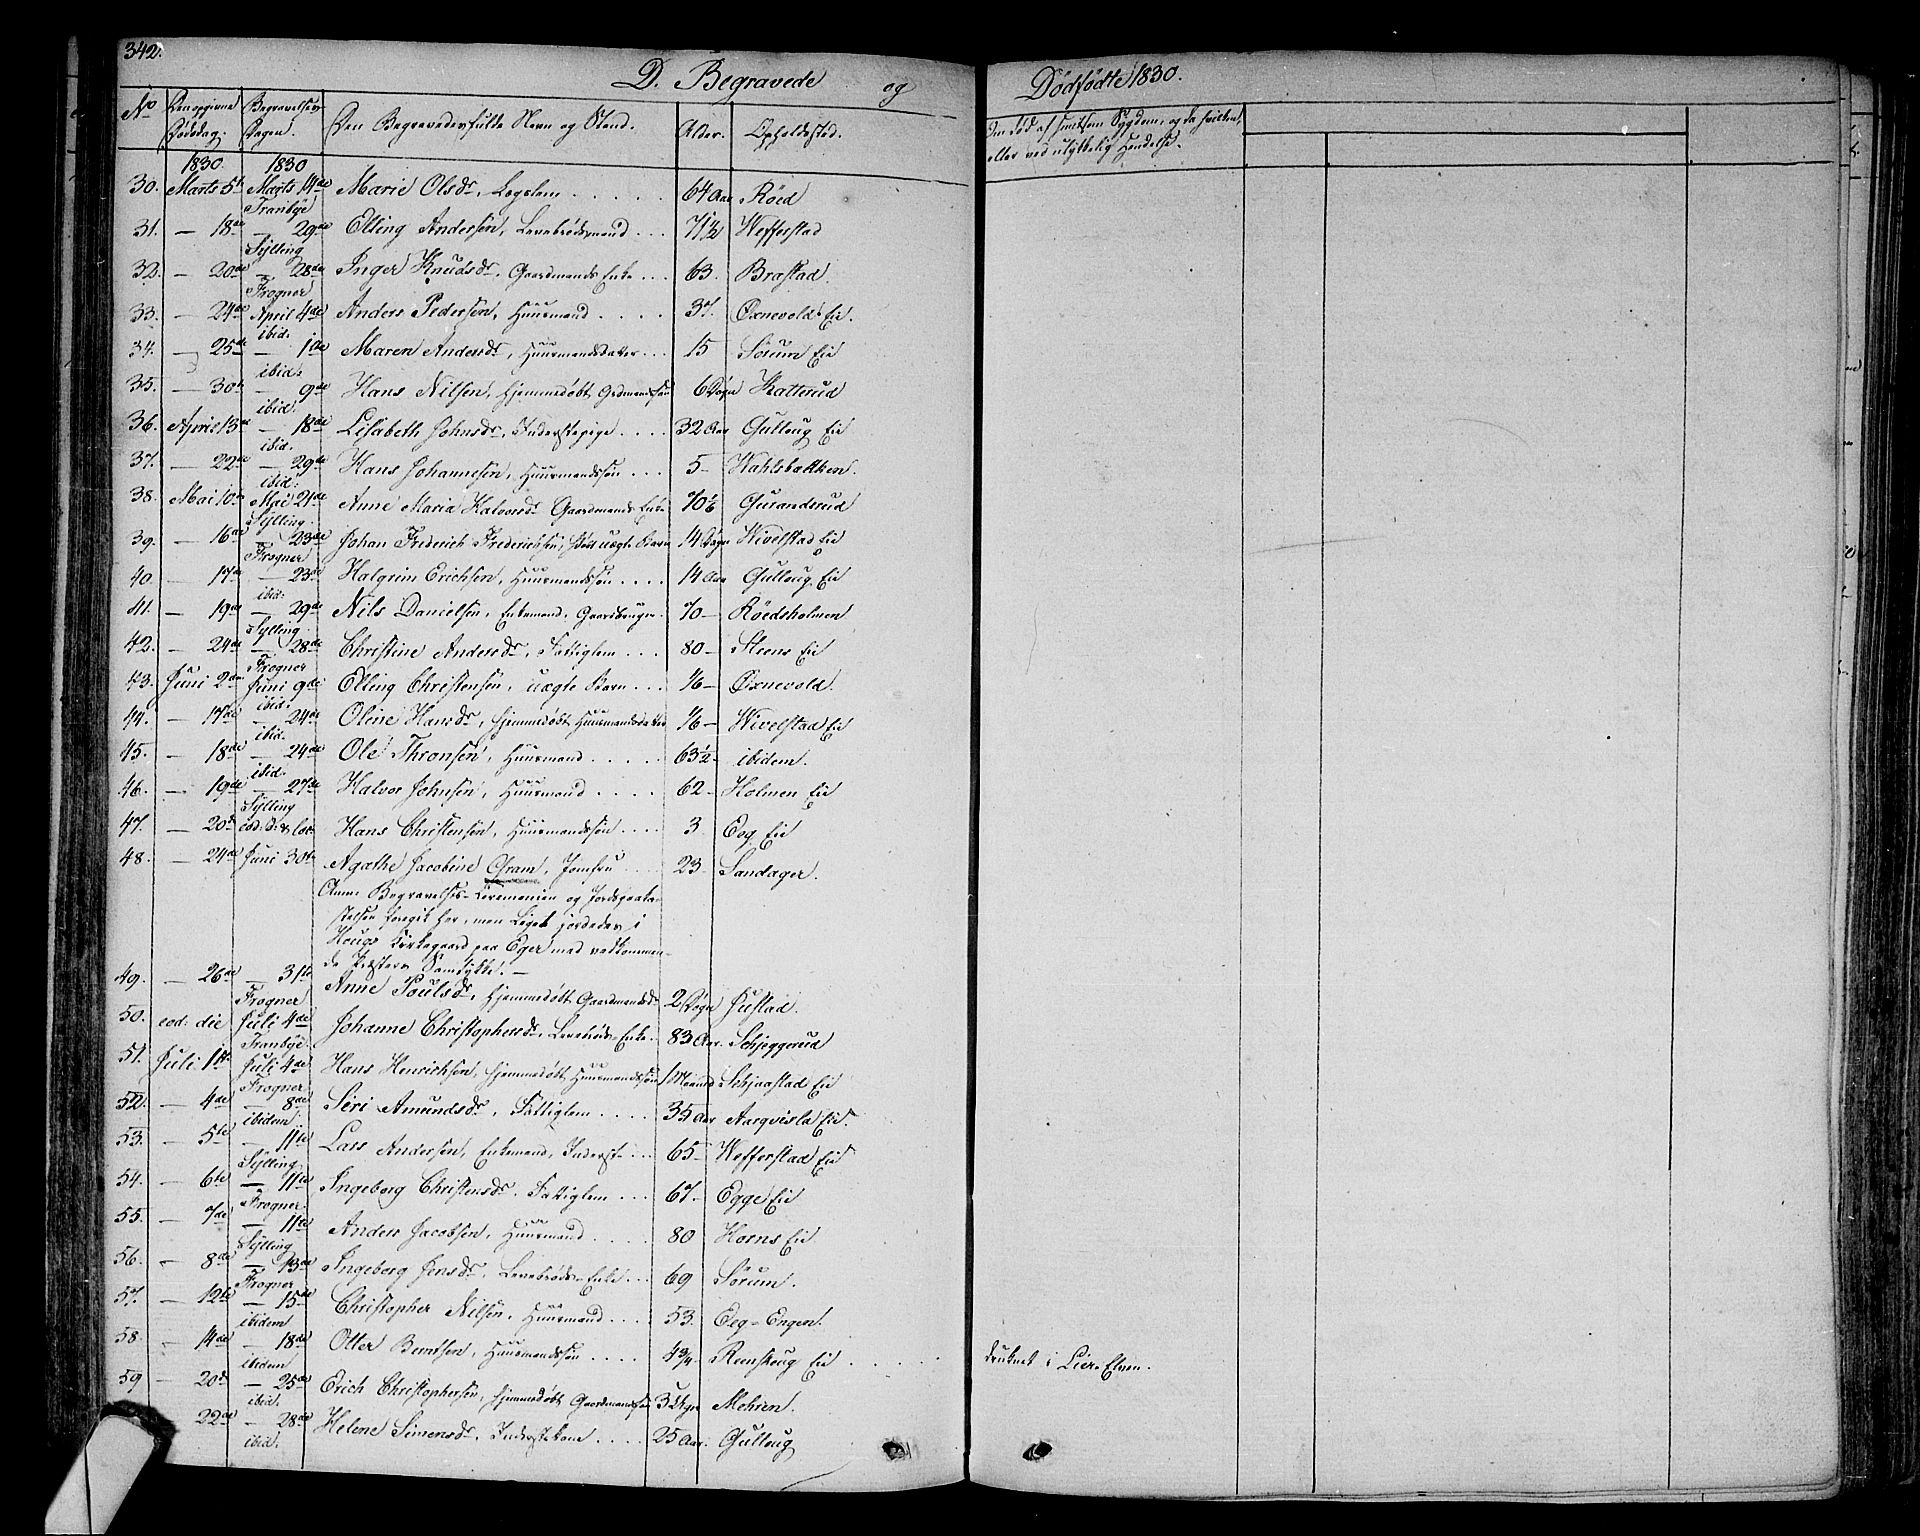 342.
D. Begravede og Dødfødte 1830.
No Den opgivne Dødsdag. Begravelses Dagen. Den Begravedes fulde Navn og Stand. Alder. Opholdssted. Om død af smitsom Sygdom, og da hvilken, eller ved ulykkelig Hendelse.
1830. 1830
30. Marts 5te Marts 14de Marie Olsdr, Lægslem 64 Aar Røed
Tranbye
31. — 18de — 29de Elling Andersen, Levebrødsmand 71½ Wefferstad
Sylling
32. — 20de — 28de Inger Knudsdr, Gaardmands Enke 63. Brastad
Frogner
33. — 24de April 4de Anders Pedersen, Huusmand 37. Øxnevolds Eie.
ibid.
34. — 25de — 1de Maren Andersdr, Huusmandsdatter 15 Sørum Eie
ibid.
35. — 30te — 9de Hans Nilsen, hjemmedøbt Grdmandssøn 6 Døgn Katterud
ibid.
36. April 13de — 18de Lisabeth Johnsdr, Inderstepige 32 Aar Gulloug Eie
ibid.
37. — 22de — 29de Hans Johannesen, Huusmandssøn 5 — Wahlsbakken.
ibid.
38. Mai 10de Mai 21de Anne Maria Halvorsdr Gaardmands Enke 70½ Guranderud
Sylling.
39. — 16de — 23de Johan Frederich Frederichsen, uægte Barn 14 Døgn Wivelstad Eie
Frogner
40. — 17de — 23de Halgrim Erichsen, Huusmandssøn 14 Aar Gulloug Eie
ibid.
41. — 19de — 29de Nils Danielsen, Enkemand, Gaardbruger 70 — Røedsholmen
Sylling
42. — 24de — 28de Christine Andersdr, Fattiglem 80 — Steens Eie
Frogner
43. Juni 2den Juni 9de Elling Christensen, uægte Barn 1/6 — Øxnevold.
ibid.
44. — 17de — 24de Oline Hansdr, hjemmedøbt Huusmandsdatter 1/6 — Wivelstad Eie
ibid.
45. — 18de — 24de Ole Thronsen, Huusmand 63½ — ibidem.
ibid.
46. — 19de — 27de Halvor Johnsen, Huusmand 62 — Holmen Eie
Sylling
47. — 20de eod. d: & loc: Hans Christensen, Huusmandssøn 3. Eeg Eie
48. — 24de Juni 30te Agathe Jacobine Gram, Jomfru 23 — Sandager.
Anm: Begravelses-Ceremonien og Jordspaaka-
stelsen foregik her, men Liget jordedes i
Hougs Kirkegaard paa Eger med vedkommen-
de Præsters Samtykke. —
49. — 26de — 31te Anne Poulsdr, hjemmedøbt Gaardmandsd. 2 Døgn Justad.
Frogner
50. eod: die Juli 4de Johanne Christophersdr, Levebrøds-Enke 83 Aar. Schjeggerud
Tranbye
51. Juli 1ste Juli 4de Hans Henrichsen, hjemmedøbt Huusmandssøn 1 Maaned Schjaastad Eie
Frogner
52. — 4de — 8de Siri Amundsdr, Fattiglem 35 Aar Aarqvisla Eie.
ibidem
53. — 5te — 11te Lars Andersen, Enkemand, Inderst 65 — Wefferstad Eie
Sylling
54. — 6te — 11te Ingeborg Christensdr, Fattiglem 67. Egge Eie
Frogner
55. — 7de — 11te Anders Jacobsen, Huusmand 80 Horns Eie
Sylling
56. — 8de — 13de Ingeborg Jensdr, Levebrøds-Enke 69 Sørum.
Frogner
57. — 12te — 15de Christopher Nilsen, Huusmand 53. Eeg-Engen.
ibidem
58. — 14de — 18de Otter Berntsen, Huusmandssøn 4¾ Renskoug Eie druknet i Lier-Elven.
ibidem
59 — 20de — 25de Erich Christophersen, hjemmedøbt Gaardmandssøn 3 Uger Mehren.
ibid.
22de — 28de Helene Simensdr, Inderstekone 25 Aar. Gulloug
ibid.